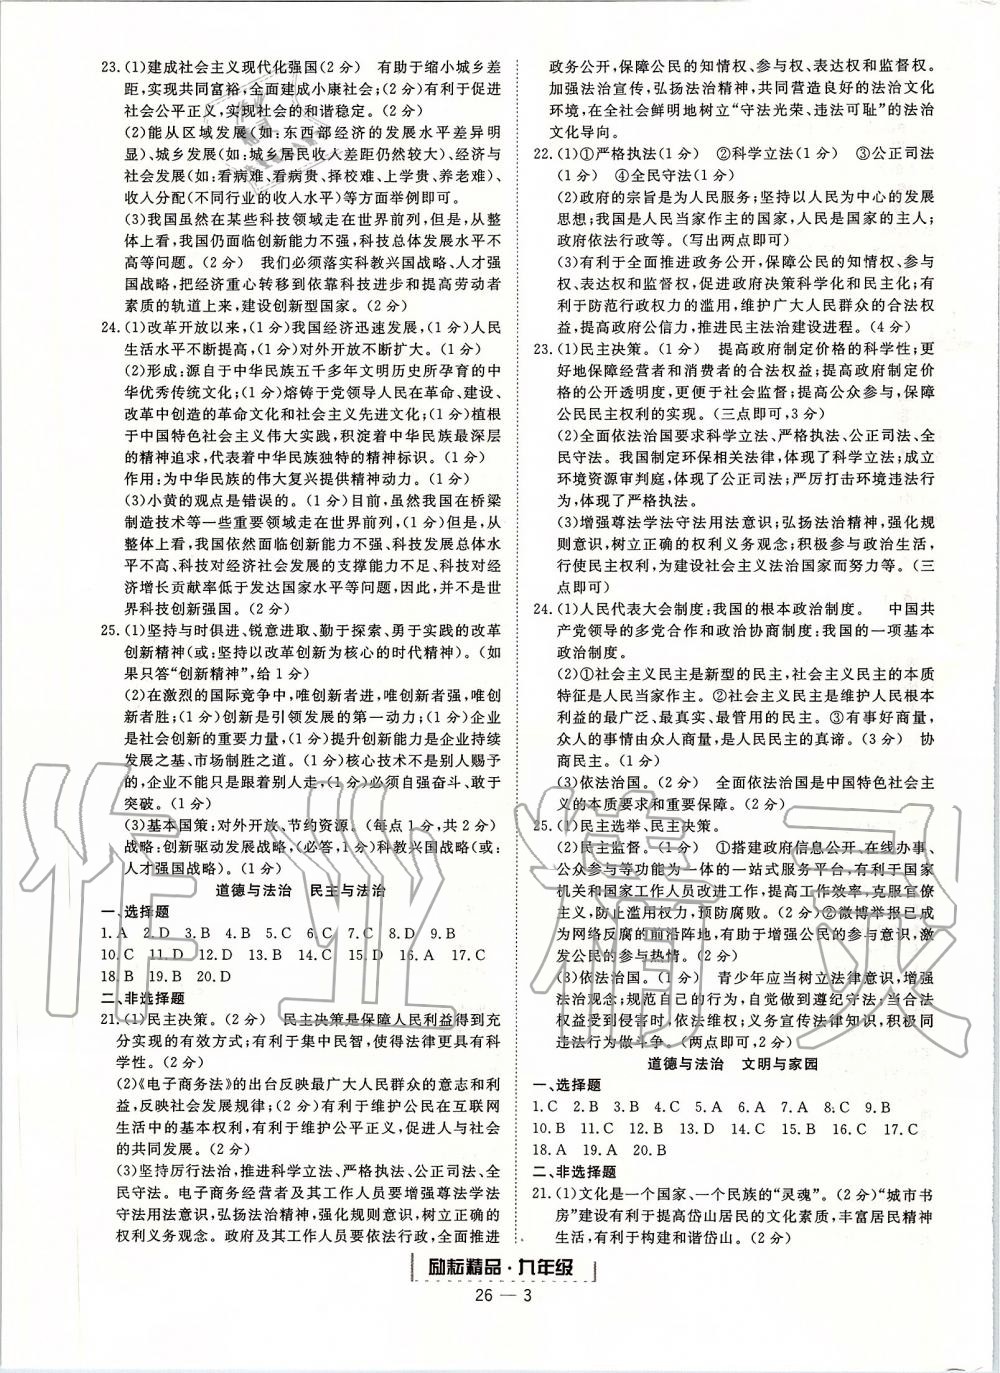 23.(1)建成社会主义现代化强国(2分) 有助于缩小城乡差
距,实现共同富裕;全面建成小康社会;(2分)有利于促进
社会公平正义,实现社会的和谐稳定。(2分)
(2)能从区域发展(如:东西部经济的发展水平差异明
显)、城乡发展(如:城乡居民收入差距仍然较大)、经济与
社会发展(如:看病难、看病贵、择校难、上学贵、养老难)、
收入分配(不同行业的收入水平)等方面举例即可。
(3)我国虽然在某些科技领域走在世界前列,但是,从整
体上看,我国仍面临创新能力不强,科技总体发展水平不
高等问题。(2分) 我们必须落实科教兴国战略、人才强
国战略,把经济重心转移到依靠科技进步和提高劳动者
素质的轨道上来,建设创新型国家。(2分)
24.(1)改革开放以来,(1分)我国经济迅速发展,(1分)人民
生活水平不断提高,(1分)对外开放不断扩大。(1分)
(2)形成:源自于中华民族五千多年文明历史所孕育的中
华优秀传统文化;(1分)熔铸于党领导人民在革命、建设、
改革中创造的革命文化和社会主义先进文化;(1分)植根
于中国特色社会主义伟大实践,积淀着中华民族最深层
的精神追求,代表着中华民族独特的精神标识。(1分)
作用:为中华民族的伟大复兴提供精神动力。(1分)
(3)小黄的观点是错误的。(1分)目前,虽然我国在桥梁
制造技术等一些重要领域走在世界前列,(1分)但是,从
整体上看,我国依然面临创新能力不强、科技发展水平总
体不高、科技对经济社会发展的支撑能力不足、科技对经
济增长贡献率低于发达国家水平等问题,因此,并不是世
界科技创新强国。(2分)
25.(1)坚持与时俱进、锐意进取、勤于探索、勇于实践的改革
创新精神(或:坚持以改革创新为核心的时代精神)。(如
果只答“创新精神”,给1分)
(2)在激烈的国际竞争中,唯创新者进,唯创新者强,唯创
新者胜;(1分)创新是引领发展的第一动力;(1分)企业
是社会创新的重要力量,(1分)提升创新能力是企业持续
发展之基、市场制胜之道。(1分)核心技术不是别人赐予
的,企业不能只是跟着别人走,(1分)必须自强奋斗、敢于
突破。(1分)
(3)基本国策:对外开放、节约资源。(每点1分,共2分)
战略:创新驱动发展战略,(必答,1分)科教兴国战略(或:
人才强国战略)。(1分)
道德与法治 民主与法治
一、选择题
1.A 2.D 3.B 4.B 5.C 6.C 7.C 8.D 9.B
10.C 11.D 12.D 13.B 14.C 15.D 16.A 17.C
18.B 19.B 20.D
二、非选择题
21.(1)民主决策。(2分) 民主决策是保障人民利益得到充
分实现的有效方式;有利于集中民智,使得法律更具有科
学性。(2分)
(2)《电子商务法》的出台反映最广大人民群众的意志和利
益,反映社会发展规律;(2分)有利于维护公民在互联网
生活中的基本权利,有利于维护公平正义,促进人与社会
的共同发展。(2分)
(3)坚持厉行法治,推进科学立法、严格执法、公正司法、全
民守法。电子商务经营者及其工作人员要增强尊法学法
守法用法意识,弘扬法治精神,强化规则意识,树立正确的
权利义务观念。政府及其工作人员要依法行政,全面推进
政务公开,保障公民的知情权、参与权、表达权和监督权。
加强法治宣传,弘扬法治精神,共同营造良好的法治文化
环境,在全社会鲜明地树立“守法光荣、违法可耻”的法治
文化导向。
22.(1)①严格执法(1分) ②科学立法(1分) ③公正司法
(1分) ④全民守法(1分)
(2)政府的宗旨是为人民服务;坚持以人民为中心的发展
思想;我国是人民当家作主的国家,人民是国家的主人;
政府依法行政等。(写出两点即可)
(3)有利于全面推进政务公开,保障公民的知情权、参与
权、表达权和监督权,促进政府决策科学化和民主化;有
利于防范行政权力的滥用,维护广大人民群众的合法权
益,提高政府公信力,推进民主法治建设进程。(4分)
23.(1)民主决策。(1分) 提高政府制定价格的科学性;更
好地保障经营者和消费者的合法权益;提高政府制定价
格的公开透明度,更便于社会监督;提高公众参与,保障
公民民主权利的实现。(三点即可,3分)
(2)全面依法治国要求科学立法、严格执法、公正司法、全
民守法。我国制定环保相关法律,体现了科学立法;成立
环境资源审判庭,体现了公正司法;严厉打击环境违法行
为,体现了严格执法。
(3)增强尊法学法守法用法意识;弘扬法治精神,强化规
则意识,树立正确的权利义务观念;积极参与政治生活,
行使民主权利,为建设社会主义法治国家而努力等。(三
点即可)
24.(1)人民代表大会制度:我国的根本政治制度。 中国共
产党领导的多党合作和政治协商制度:我国的一项基本
政治制度。
(2)①社会主义民主是新型的民主,社会主义民主的本质
特征是人民当家作主。②社会主义民主是维护人民根本
利益的最广泛、最真实、最管用的民主。③有事好商量,
众人的事情由众人商量,是人民民主的真谛。(3分) 协
商民主。(1分)
(3)依法治国。(2分) 全面依法治国是中国特色社会主
义的本质要求和重要保障。(2分)
25.(1)民主选举、民主决策。
(2)民主监督。(2分) ①搭建政府信息公开、在线办事、
公众参与等功能为一体的一站式服务平台,有利于国家
机关和国家工作人员改进工作,提高工作效率,克服官僚
主义,防止滥用权力,预防腐败。(2分)②微博举报已成
为网络反腐的前沿阵地,有助于增强公民的参与意识,激
发公民的参与热情。(2分)
(3)依法治国。(1分) 青少年应当树立法律意识,增强
法治观念;规范自己的行为,自觉做到遵纪守法;当合法
权益受到侵害时,依法维权;义务宣传法律知识,积极同
违法行为做斗争。(两点即可,2分)
道德与法治 文明与家园
一、选择题
1.C 2.B 3.B 4.B 5.A 6.B 7.A 8.C 9.B
10.B 11.C 12.B 13.D 14.C 15.B 16.C 17.C
18.A 19.A 20.B
二、非选择题
21.(1)文化是一个国家、一个民族的“灵魂”。(2分)“城市书
房”建设有利于提高岱山居民的文化素质,丰富居民精神
生活,有利于构建和谐岱山。(2分)
励耘精品·九年级
26 — 3
作业精灵